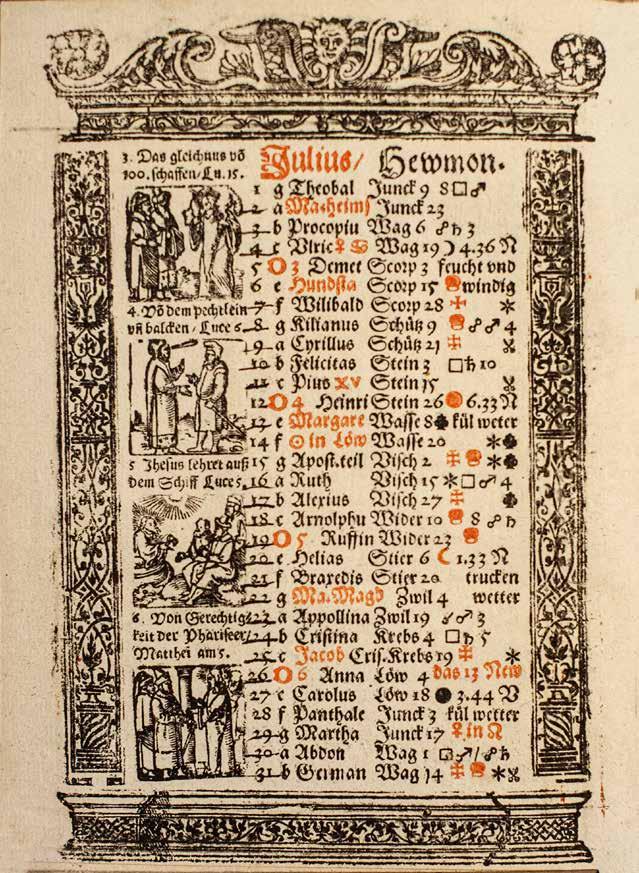 3. Das gleichnus võ
100. schaffen/Lu. 15.
Julius/ Hewmon.
1 g Theobal Junck 9 8□♂
2 a Ma.heims Junck 23
3 b Procopiu Wag 6 ☍♄ 3
4 c Vlric ♀ ♋ Wag 19 ☽ 4.36 N
5 O 3 Demet Scorp 3 feucht vnd
6 e Hundsta Scorp 15 windig
4. Võ dem pechtlein
vñ balcken/Luce 6.
7 f Wilibald Scorp 28 ✠ *
8 g Kilianus Schütz 9 ☍♂ 4
9 a Cyrillus Schütz 21 ✠
10 b Felicitas Stein 3 □♄ 10
11 c Pius XV Stein 15
12 O 4 Heinri Stein 26 6.33 N
13 e Margare Wasse 8 kül weter
14 f ☉ in Löw Wasse 20 *
5 Jhesus lehret auß
dem Schiff Luce 5.
15 g Apost.teil Visch 2 ✠ *
16 a Ruth Visch 15 *□♂ 4
17 b Alexius Visch 27 ✠
18 c Arnolphu Wider 10 8 ☍♄
19 O 5 Ruffin Wider 23
20 e Helias Stier 6 ☾ 1.33 N
21 f Braxedis Stier 20 trucken
22 g Ma.Magd Zwil 4 wetter
6. Von Gerechtig⸗
keit der Phariseer/
Matthei am 5.
23 a Appollina Zwil 19 ☌♂ 3
24 b Cristina Krebs 4 □♄ 5
25 c Jacob Cris.Krebs 19 ✠ *
26 O 6 Anna Löw 4 das 13 New
27 e Carolus Löw 18 ● 3.44 V
28 f Panthale Junck 3 kül wetter
29 g Martha Junck 17 ♀ in ♌
30 a Abdon Wag 1 □♂/☍♄
31 b German Wag 14 ✠ *